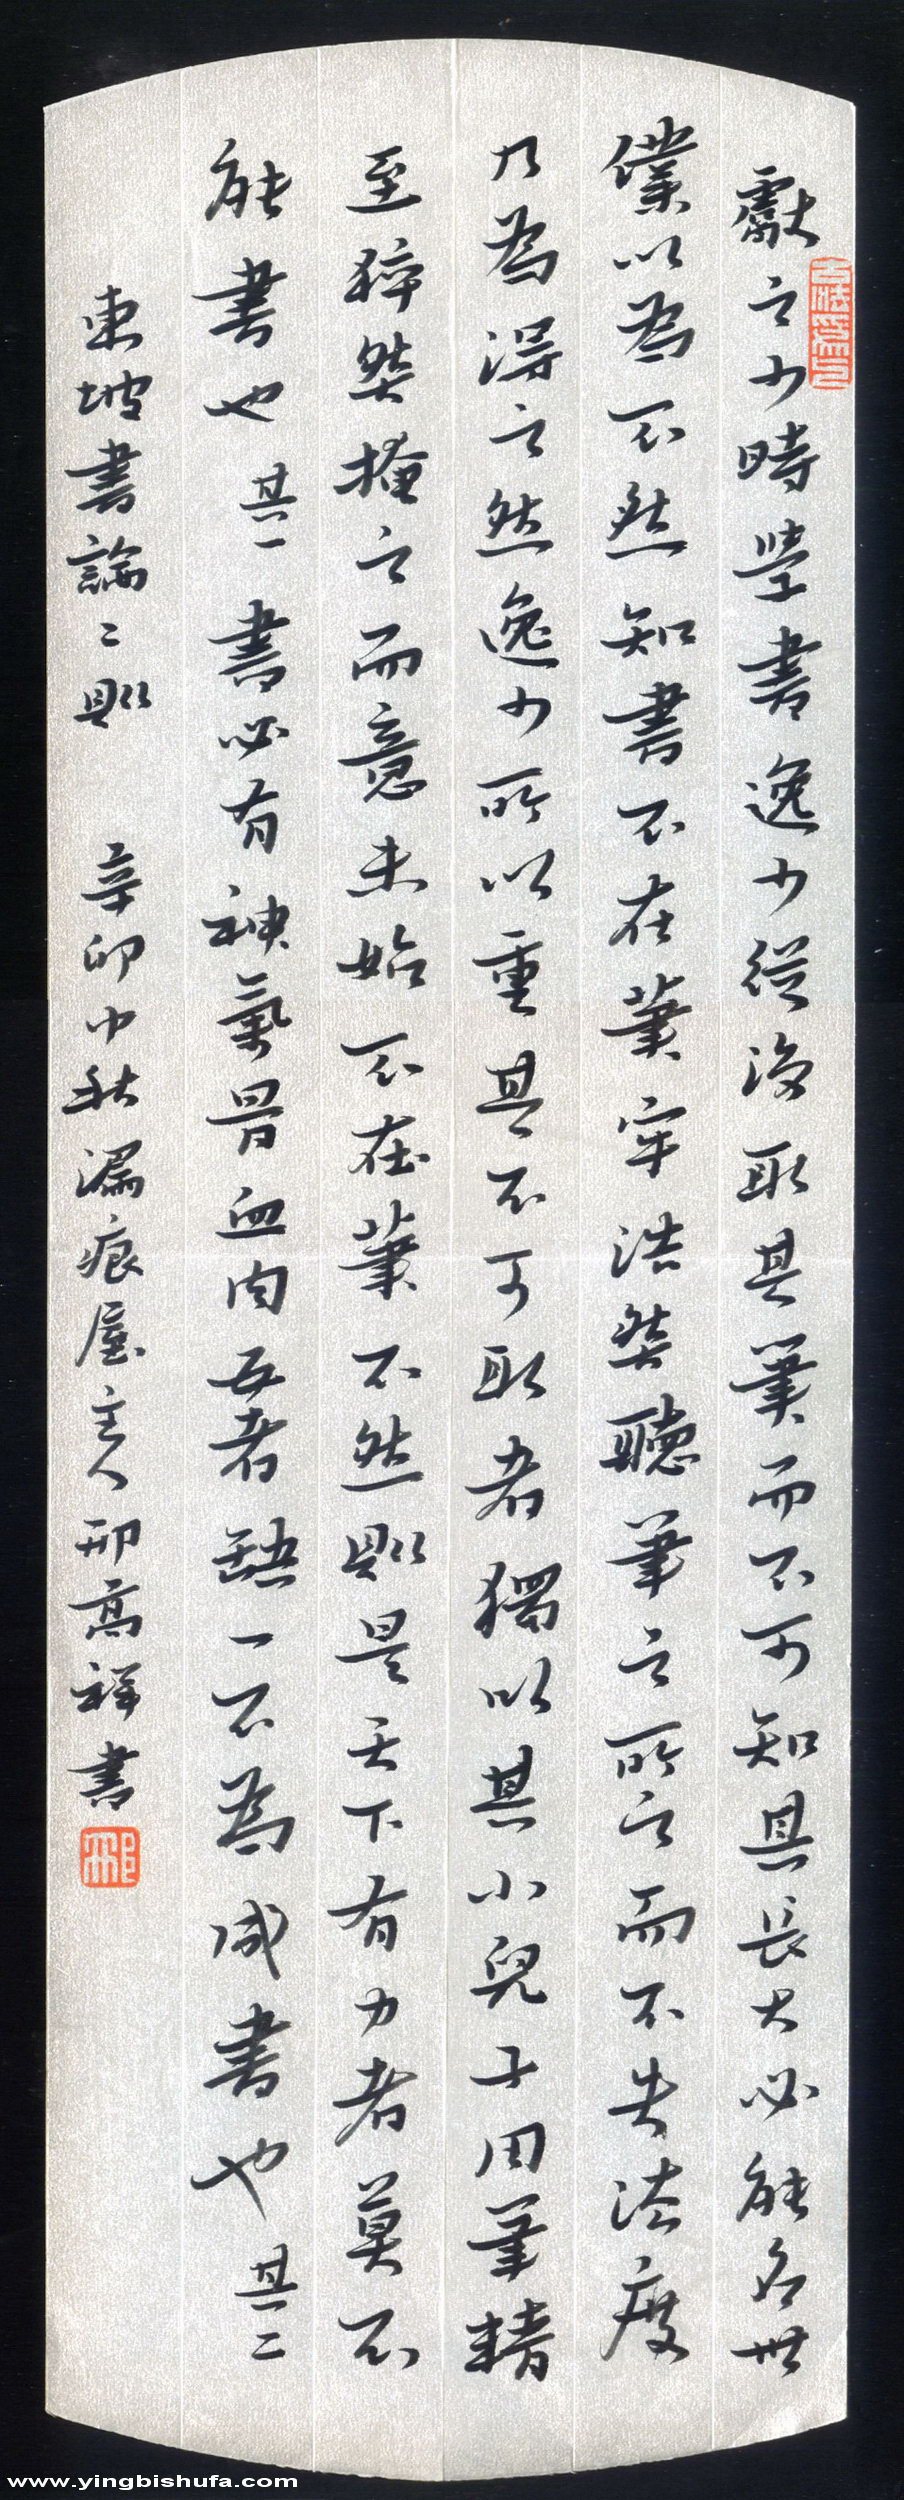 獻之少時學書逸少從後取其筆而不可知其長大必能名世
僕以為不然知書不在筆牢浩然聽筆之所之而不失法度
乃為得之然逸少所以重其不可取者獨以其小兒子用筆精
至猝然掩之而意未始不在筆不然則是天下有力者莫不
能書也 其一 書必有神氣骨血肉五者缺一不為成書也 其二
東坡書論二則 辛卯中秋漏痕屋主人邢高祥書
邢
www.yingbishufa.com